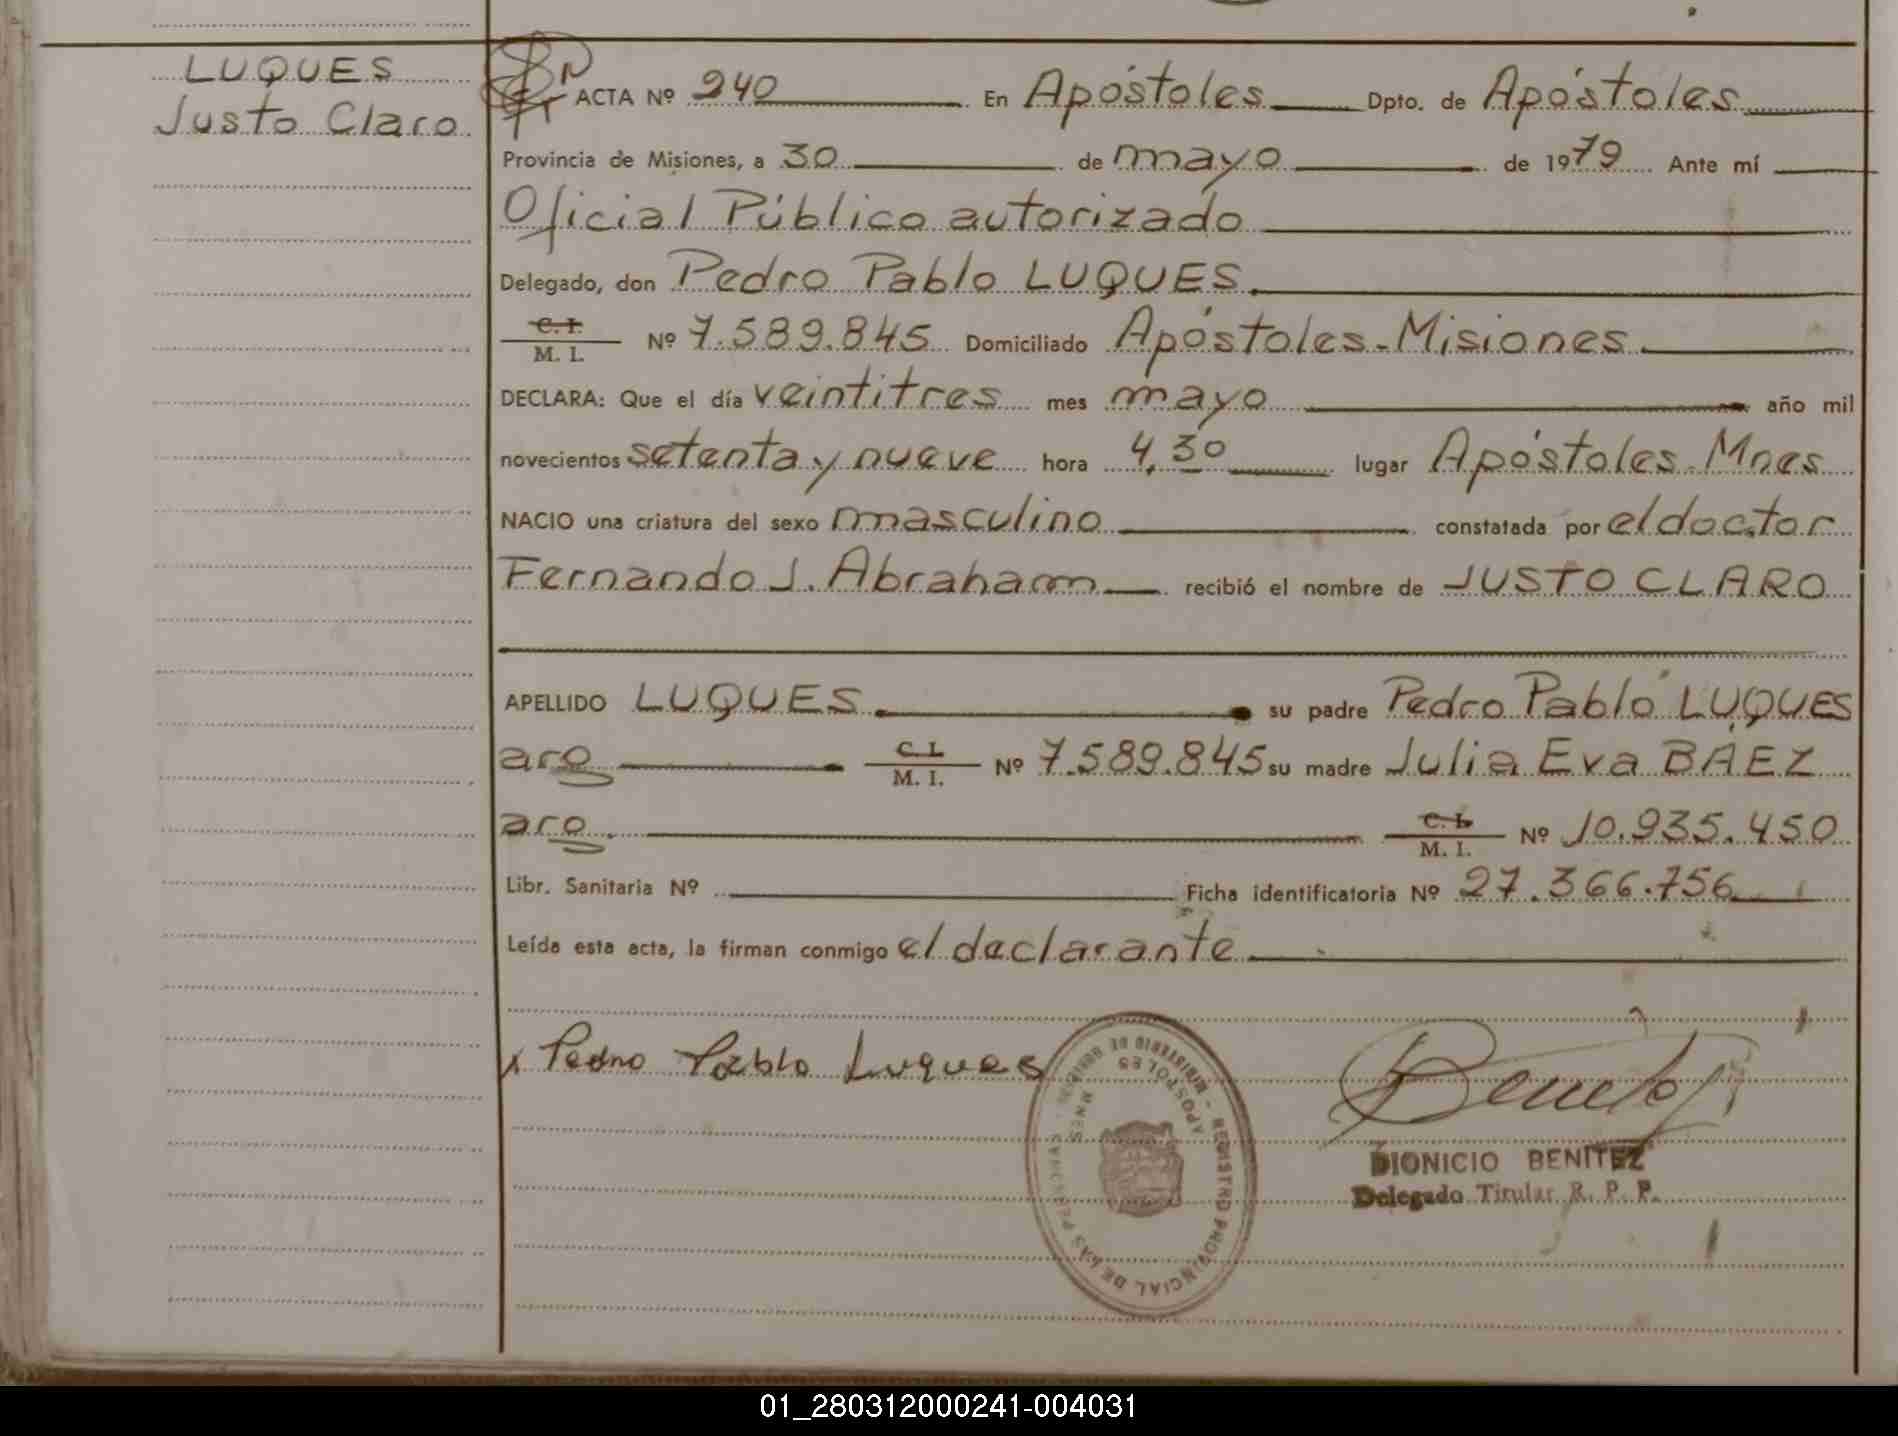 LUQUES
Justo Claro.
ACTA Nº 240 En Apóstoles Dpto. de Apóstoles
Provincia de Misiones, a 30 de mayo de 1979 Ante mí
Oficial Público autorizado
Delegado, don Pedro Pablo LUQUES.
C. I.
M. I. Nº 7.589.845 Domiciliado Apóstoles-Misiones.
DECLARA: Que el día veintitres mes mayo año mil
novecientos setenta y nueve hora 4,30 lugar Apóstoles-Mnes
NACIO una criatura del sexo masculino constatada por el doctor
Fernando J. Abraham recibió el nombre de JUSTO CLARO
APELLIDO LUQUES su padre Pedro Pablo LUQUES
aro C. I.
M. I. Nº 7.589.845 su madre Julia Eva BAEZ
aro. C. I.
M. I. Nº 10.935.450
Libr. Sanitaria Nº Ficha identificatoria Nº 27.366.756
Leída esta acta, la firman conmigo el declarante
x Pedro Pablo Luques
REGISTRO PROVINCIAL DE LAS PERSONAS - MINISTERIO DE GOBIERNO -
APOSTOLES
MNES
DIONICIO BENITEZ
Delegado Titular R. P. P.
01_280312000241-004031